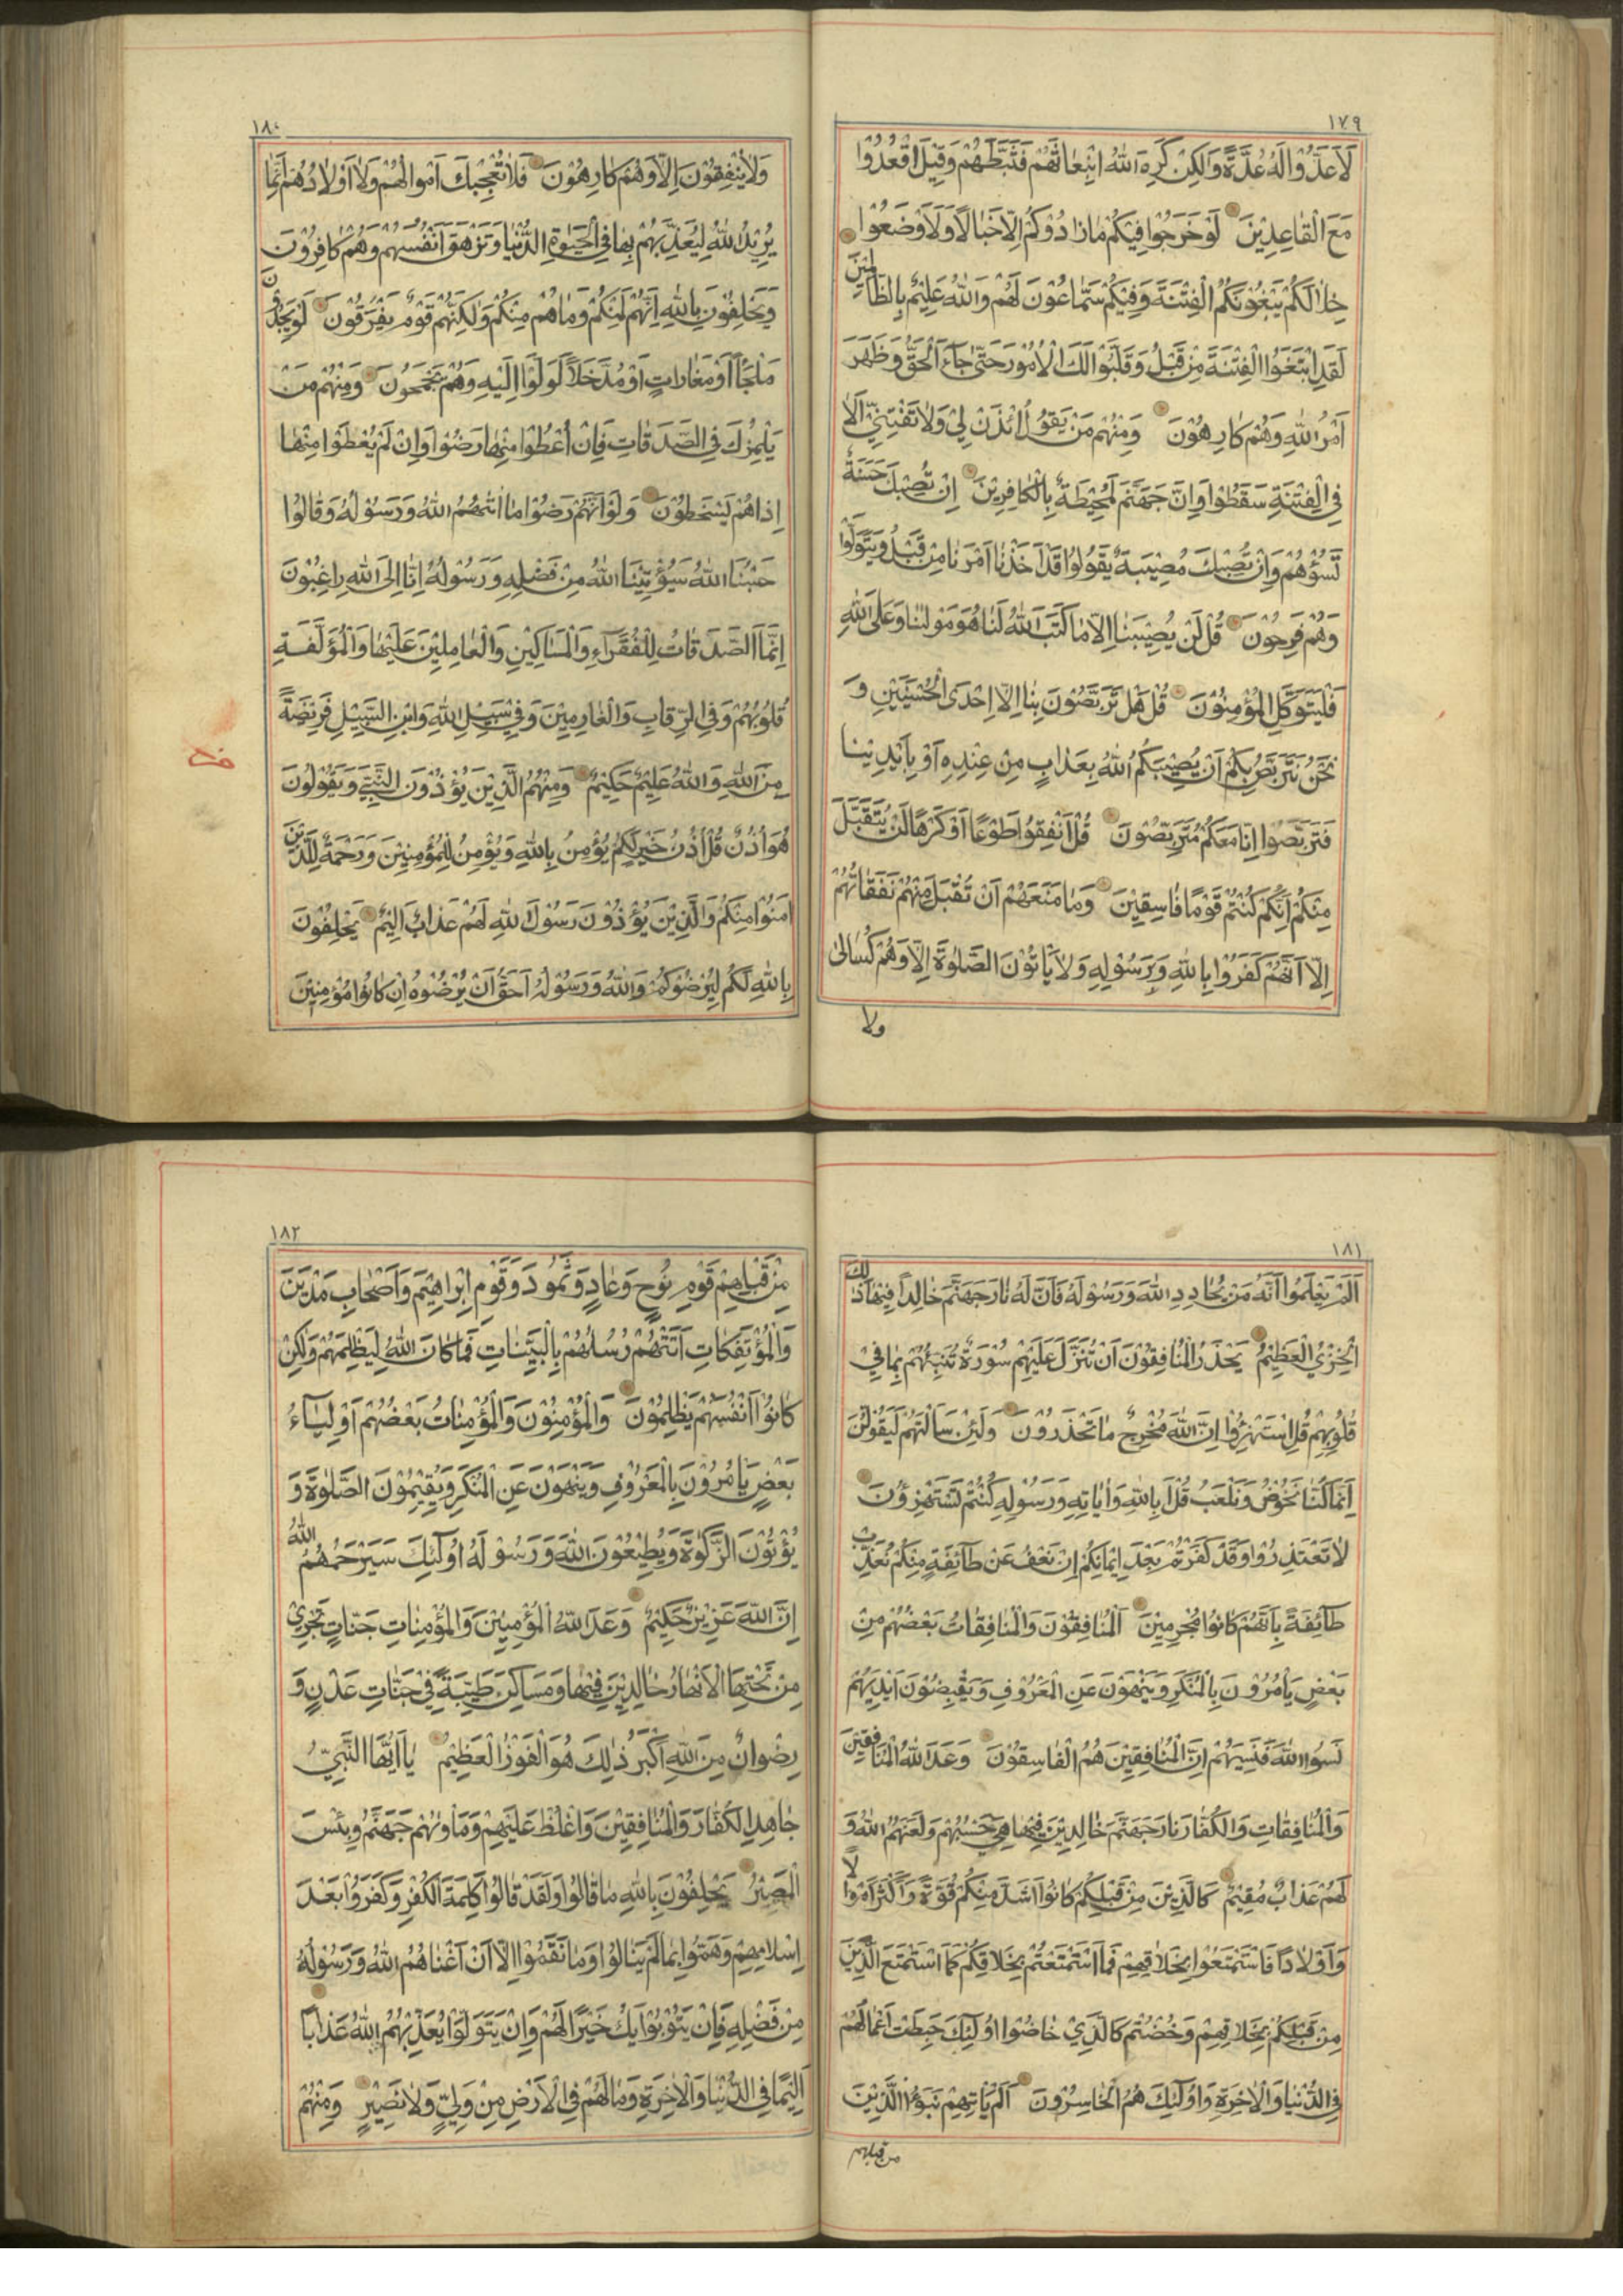 ١٧٩
لَاَعَدُّوْا لَهُ عُدَّةً وَلٰكِنْ كَرِهَ اللّٰهُ انْبِعَاثَهُمْ فَثَبَّطَهُمْ وَقِيْلَ اقْعُدُوْا
مَعَ الْقَاعِدِيْنَ لَوْ خَرَجُوْا فِيْكُمْ مَا زَادُوْكُمْ اِلَّا خَبَالًا وَلَاَوْضَعُوْا
خِلَالَكُمْ يَبْغُوْنَكُمُ الْفِتْنَةَ وَفِيْكُمْ سَمَّاعُوْنَ لَهُمْ وَاللّٰهُ عَلِيْمٌ بِالظَّالِمِيْنَ
لَقَدِ ابْتَغَوُا الْفِتْنَةَ مِنْ قَبْلُ وَقَلَّبُوْا لَكَ الْاُمُوْرَ حَتّٰى جَاءَ الْحَقُّ وَظَهَرَ
اَمْرُ اللّٰهِ وَهُمْ كَارِهُوْنَ وَمِنْهُمْ مَنْ يَقُوْلُ ائْذَنْ لِيْ وَلَا تَفْتِنِّيْ اَلَا
فِي الْفِتْنَةِ سَقَطُوْا وَاِنَّ جَهَنَّمَ لَمُحِيْطَةٌ بِالْكَافِرِيْنَ اِنْ تُصِبْكَ حَسَنَةٌ
تَسُؤْهُمْ وَاِنْ تُصِبْكَ مُصِيْبَةٌ يَقُوْلُوْا قَدْ اَخَذْنَا اَمْرَنَا مِنْ قَبْلُ وَيَتَوَلَّوْا
وَهُمْ فَرِحُوْنَ قُلْ لَنْ يُصِيْبَنَا اِلَّا مَا كَتَبَ اللّٰهُ لَنَا هُوَ مَوْلٰنَا وَعَلَى اللّٰهِ
فَلْيَتَوَكَّلِ الْمُؤْمِنُوْنَ قُلْ هَلْ تَرَبَّصُوْنَ بِنَا اِلَّا اِحْدَى الْحُسْنَيَيْنِ وَ
نَحْنُ نَتَرَبَّصُ بِكُمْ اَنْ يُصِيْبَكُمُ اللّٰهُ بِعَذَابٍ مِنْ عِنْدِهِ اَوْ بِاَيْدِيْنَا
فَتَرَبَّصُوْا اِنَّا مَعَكُمْ مُتَرَبِّصُوْنَ قُلْ اَنْفِقُوْا طَوْعًا اَوْ كَرْهًا لَنْ يُتَقَبَّلَ
مِنْكُمْ اِنَّكُمْ كُنْتُمْ قَوْمًا فَاسِقِيْنَ وَمَا مَنَعَهُمْ اَنْ تُقْبَلَ مِنْهُمْ نَفَقَاتُهُمْ
اِلَّا اَنَّهُمْ كَفَرُوْا بِاللّٰهِ وَبِرَسُوْلِهِ وَلَا يَاْتُوْنَ الصَّلٰوةَ اِلَّا وَهُمْ كُسَالٰى
ولا
١٨٠
وَلَا يُنْفِقُوْنَ اِلَّا وَهُمْ كَارِهُوْنَ فَلَا تُعْجِبْكَ اَمْوَالُهُمْ وَلَا اَوْلَادُهُمْ اِنَّمَا
يُرِيْدُ اللّٰهُ لِيُعَذِّبَهُمْ بِهَا فِي الْحَيٰوةِ الدُّنْيَا وَتَزْهَقَ اَنْفُسُهُمْ وَهُمْ كَافِرُوْنَ
وَيَحْلِفُوْنَ بِاللّٰهِ اِنَّهُمْ لَمِنْكُمْ وَمَا هُمْ مِنْكُمْ وَلٰكِنَّهُمْ قَوْمٌ يَفْرَقُوْنَ لَوْ يَجِدُوْنَ
مَلْجَاً اَوْ مَغَارَاتٍ اَوْ مُدَّخَلًا لَوَلَّوْا اِلَيْهِ وَهُمْ يَجْمَحُوْنَ وَمِنْهُمْ مَنْ
يَلْمِزُكَ فِي الصَّدَقَاتِ فَاِنْ اُعْطُوْا مِنْهَا رَضُوْا وَاِنْ لَمْ يُعْطَوْا مِنْهَا
اِذَا هُمْ يَسْخَطُوْنَ وَلَوْ اَنَّهُمْ رَضُوْا مَا اٰتٰهُمُ اللّٰهُ وَرَسُوْلُهُ وَقَالُوْا
حَسْبُنَا اللّٰهُ سَيُؤْتِيْنَا اللّٰهُ مِنْ فَضْلِهِ وَرَسُوْلُهُ اِنَّا اِلَى اللّٰهِ رَاغِبُوْنَ
اِنَّمَا الصَّدَقَاتُ لِلْفُقَرَاءِ وَالْمَسَاكِيْنِ وَالْعَامِلِيْنَ عَلَيْهَا وَالْمُؤَلَّفَةِ
قُلُوْبُهُمْ وَفِي الرِّقَابِ وَالْغَارِمِيْنَ وَفِيْ سَبِيْلِ اللّٰهِ وَابْنِ السَّبِيْلِ فَرِيْضَةً
مِنَ اللّٰهِ وَاللّٰهُ عَلِيْمٌ حَكِيْمٌ وَمِنْهُمُ الَّذِيْنَ يُؤْذُوْنَ النَّبِيَّ وَيَقُوْلُوْنَ
هُوَ اُذُنٌ قُلْ اُذُنُ خَيْرٍ لَكُمْ يُؤْمِنُ بِاللّٰهِ وَيُؤْمِنُ لِلْمُؤْمِنِيْنَ وَرَحْمَةٌ لِلَّذِيْنَ
اٰمَنُوْا مِنْكُمْ وَالَّذِيْنَ يُؤْذُوْنَ رَسُوْلَ اللّٰهِ لَهُمْ عَذَابٌ اَلِيْمٌ يَحْلِفُوْنَ
بِاللّٰهِ لَكُمْ لِيُرْضُوْكُمْ وَاللّٰهُ وَرَسُوْلُهُ اَحَقُّ اَنْ يُرْضُوْهُ اِنْ كَانُوْا مُؤْمِنِيْنَ
١٨١
اَلَمْ يَعْلَمُوْا اَنَّهُ مَنْ يُحَادِدِ اللّٰهَ وَرَسُوْلَهُ فَاَنَّ لَهُ نَارَ جَهَنَّمَ خَالِدًا فِيْهَا ذٰلِكَ
الْخِزْيُ الْعَظِيْمُ يَحْذَرُ الْمُنَافِقُوْنَ اَنْ تُنَزَّلَ عَلَيْهِمْ سُوْرَةٌ تُنَبِّئُهُمْ بِمَا فِيْ
قُلُوْبِهِمْ قُلِ اسْتَهْزِؤُا اِنَّ اللّٰهَ مُخْرِجٌ مَا تَحْذَرُوْنَ وَلَئِنْ سَاَلْتَهُمْ لَيَقُوْلُنَّ
اِنَّمَا كُنَّا نَخُوْضُ وَنَلْعَبُ قُلْ اَبِاللّٰهِ وَاٰيَاتِهِ وَرَسُوْلِهِ كُنْتُمْ تَسْتَهْزِؤُنَ
لَا تَعْتَذِرُوْا وَقَدْ كَفَرْتُمْ بَعْدَ اِيْمَانِكُمْ اِنْ نَعْفُ عَنْ طَائِفَةٍ مِنْكُمْ نُعَذِّبْ
طَائِفَةً بِاَنَّهُمْ كَانُوْا مُجْرِمِيْنَ اَلْمُنَافِقُوْنَ وَالْمُنَافِقَاتُ بَعْضُهُمْ مِنْ
بَعْضٍ يَاْمُرُوْنَ بِالْمُنْكَرِ وَيَنْهَوْنَ عَنِ الْمَعْرُوْفِ وَيَقْبِضُوْنَ اَيْدِيَهُمْ
نَسُوا اللّٰهَ فَنَسِيَهُمْ اِنَّ الْمُنَافِقِيْنَ هُمُ الْفَاسِقُوْنَ وَعَدَ اللّٰهُ الْمُنَافِقِيْنَ
وَالْمُنَافِقَاتِ وَالْكُفَّارَ نَارَ جَهَنَّمَ خَالِدِيْنَ فِيْهَا هِيَ حَسْبُهُمْ وَلَعَنَهُمُ اللّٰهُ وَ
لَهُمْ عَذَابٌ مُقِيْمٌ كَالَّذِيْنَ مِنْ قَبْلِكُمْ كَانُوْا اَشَدَّ مِنْكُمْ قُوَّةً وَاَكْثَرَ اَمْوَالًا
وَاَوْلَادًا فَاسْتَمْتَعُوْا بِخَلَاقِهِمْ فَمَا اسْتَمْتَعْتُمْ بِخَلَاقِكُمْ كَمَا اسْتَمْتَعَ الَّذِيْنَ
مِنْ قَبْلِكُمْ بِخَلَاقِهِمْ وَخُضْتُمْ كَالَّذِيْ خَاضُوْا اُولٰئِكَ حَبِطَتْ اَعْمَالُهُمْ
فِي الدُّنْيَا وَالْاٰخِرَةِ وَاُولٰئِكَ هُمُ الْخَاسِرُوْنَ اَلَمْ يَاْتِهِمْ نَبَؤُا الَّذِيْنَ
من قبلهم
١٨٢
مِنْ قَبْلِهِمْ قَوْمِ نُوْحٍ وَعَادٍ وَثَمُوْدَ وَقَوْمِ اِبْرَاهِيْمَ وَاَصْحَابِ مَدْيَنَ
وَالْمُؤْتَفِكَاتِ اَتَتْهُمْ رُسُلُهُمْ بِالْبَيِّنَاتِ فَمَا كَانَ اللّٰهُ لِيَظْلِمَهُمْ وَلٰكِنْ
كَانُوْا اَنْفُسَهُمْ يَظْلِمُوْنَ وَالْمُؤْمِنُوْنَ وَالْمُؤْمِنَاتُ بَعْضُهُمْ اَوْلِيَاءُ
بَعْضٍ يَاْمُرُوْنَ بِالْمَعْرُوْفِ وَيَنْهَوْنَ عَنِ الْمُنْكَرِ وَيُقِيْمُوْنَ الصَّلٰوةَ وَ
يُؤْتُوْنَ الزَّكٰوةَ وَيُطِيْعُوْنَ اللّٰهَ وَرَسُوْلَهُ اُولٰئِكَ سَيَرْحَمُهُمُ اللّٰهُ
اِنَّ اللّٰهَ عَزِيْزٌ حَكِيْمٌ وَعَدَ اللّٰهُ الْمُؤْمِنِيْنَ وَالْمُؤْمِنَاتِ جَنَّاتٍ تَجْرِيْ
مِنْ تَحْتِهَا الْاَنْهَارُ خَالِدِيْنَ فِيْهَا وَمَسَاكِنَ طَيِّبَةً فِيْ جَنَّاتِ عَدْنٍ وَ
رِضْوَانٌ مِنَ اللّٰهِ اَكْبَرُ ذٰلِكَ هُوَ الْفَوْزُ الْعَظِيْمُ يَا اَيُّهَا النَّبِيُّ
جَاهِدِ الْكُفَّارَ وَالْمُنَافِقِيْنَ وَاغْلُظْ عَلَيْهِمْ وَمَاْوٰىهُمْ جَهَنَّمُ وَبِئْسَ
الْمَصِيْرُ يَحْلِفُوْنَ بِاللّٰهِ مَا قَالُوْا وَلَقَدْ قَالُوْا كَلِمَةَ الْكُفْرِ وَكَفَرُوْا بَعْدَ
اِسْلَامِهِمْ وَهَمُّوْا بِمَا لَمْ يَنَالُوْا وَمَا نَقَمُوْا اِلَّا اَنْ اَغْنَاهُمُ اللّٰهُ وَرَسُوْلُهُ
مِنْ فَضْلِهِ فَاِنْ يَتُوْبُوْا يَكُ خَيْرًا لَهُمْ وَاِنْ يَتَوَلَّوْا يُعَذِّبْهُمُ اللّٰهُ عَذَابًا
اَلِيْمًا فِي الدُّنْيَا وَالْاٰخِرَةِ وَمَا لَهُمْ فِي الْاَرْضِ مِنْ وَلِيٍّ وَلَا نَصِيْرٍ وَمِنْهُمْ